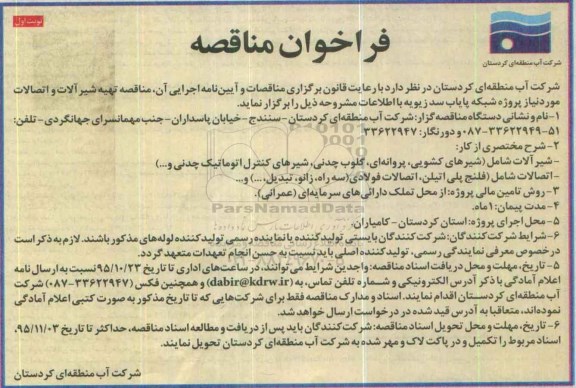 نوبت اول
شرکت آب منطقه‌ای کردستان
فراخوان مناقصه
شرکت آب منطقه‌ای کردستان در نظر دارد با رعایت قانون برگزاری مناقصات و آیین‌نامه اجرایی آن، مناقصه تهیه شیرآلات و اتصالات
مورد نیاز پروژه شبکه پایاب سد زیویه با اطلاعات مشروحه ذیل را برگزار نماید.
۱- نام و نشانی دستگاه مناقصه‌گزار: شرکت آب منطقه‌ای کردستان - سنندج - خیابان پاسداران - جنب مهمانسرای جهانگردی - تلفن:
۵۱-۳۳۶۲۲۹۴۹-۰۸۷ و دورنگار: ۳۳۶۲۲۹۴۷
۲- شرح مختصری از کار:
- شیرآلات شامل (شیرهای کشویی، پروانه‌ای، گلوب چدنی، شیرهای کنترل اتوماتیک چدنی و...)
- اتصالات شامل (فلنج پلی اتیلن، اتصالات فولادی (سه راه، زانو، تبدیل، ...) و...
۳- روش تامین مالی پروژه: از محل تملک دارائی‌های سرمایه‌ای (عمرانی).
۴- مدت پیمان: ۱ماه.
۵- محل اجرای پروژه: استان کردستان - کامیاران.
۶- شرایط شرکت‌کنندگان: شرکت‌کنندگان بایستی تولیدکننده یا نماینده رسمی تولیدکننده لوله‌های مذکور باشند. لازم به ذکر است
در خصوص معرفی نمایندگی رسمی، تولیدکننده اصلی باید نسبت به حسن انجام تعهدات متعهد گردد.
۵- تاریخ، مهلت و محل دریافت اسناد مناقصه: واجدین شرایط می‌توانند، در ساعت‌های اداری تا تاریخ ۹۵/۱۰/۲۳ نسبت به ارسال نامه
اعلام آمادگی با ذکر آدرس الکترونیکی و شماره تلفن تماس، به (dabir@kdrw.ir) و همچنین فکس (۳۳۶۲۲۹۴۷-۰۸۷) شرکت
آب منطقه‌ای کردستان اقدام نمایند. اسناد و مدارک مناقصه فقط برای شرکت‌هایی که تا تاریخ مذکور به صورت کتبی اعلام آمادگی
نموده‌اند، متعاقبا به آدرس قید شده در درخواست ارسال خواهد شد.
۶- تاریخ، مهلت و محل تحویل اسناد مناقصه: شرکت‌کنندگان باید پس از دریافت و مطالعه اسناد مناقصه، حداکثر تا تاریخ ۹۵/۱۱/۰۳،
اسناد مربوط را تکمیل و در پاکت لاک و مهر شده به شرکت آب منطقه‌ای کردستان تحویل نمایند.
شرکت آب منطقه‌ای کردستان
ParsNamadData